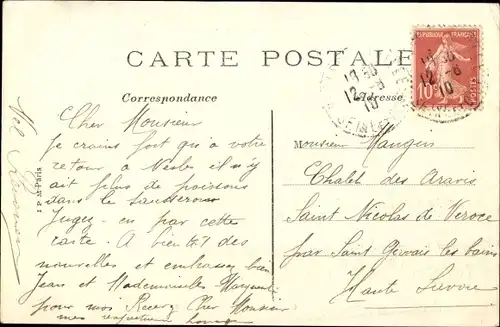 CARTE POSTALE
Correspondance
Adresse
REPUBLIQUE FRANÇAISE
10
POSTES
13 30
12 - 8
10
I P M Paris
Cher Monsieur
je crains fort qu'à votre
retour à Nesles il n'y
ait plus de poissons
dans le
Jugez-en par cette
carte. A bientôt des
nouvelles et embrassez bien
Jean et Mademoiselle Marguerite
pour moi Recevez Cher Monsieur
mes respectueux hommages
Monsieur Mangin
Chalet des Aravis
Saint Nicolas de Veroce
par Saint Gervais les bains
Haute Savoie